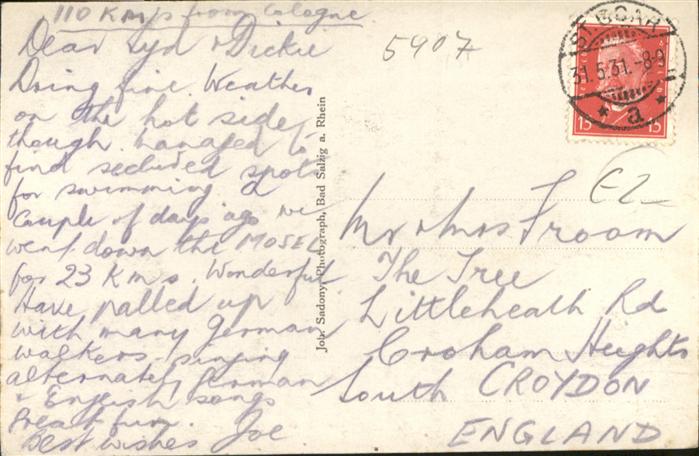 110 Kms from Cologne
Dear Lyd & Dickie
Doing fine. Weather
on the hot side,
though. Managed to
find secluded spots
for swimming. A
couple of days ago we
went down the MOSEL
for 23 Kms. Wonderful
Have palled up
with many German
walkers - singing
alternately German
& English songs
Great fun.
Best wishes Joe
5907
Joh. Sadony, Photograph, Bad Salzig a. Rhein
ST. GOAR
31.5.31.-8-9
* a *
15 15
£2-
Mr & Mrs Froom
The Tree
Littleheath Rd
Croham Heights
South CROYDON
ENGLAND